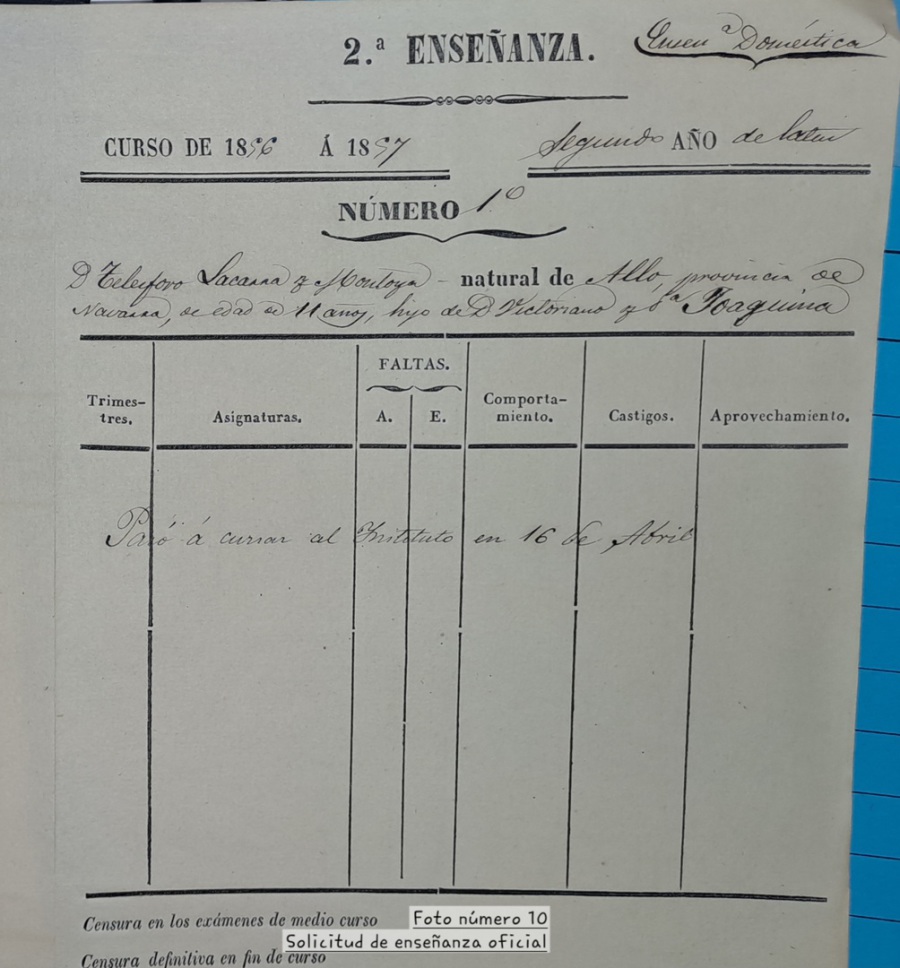 2.ª ENSEÑANZA. Enseñ.ª Doméstica
CURSO DE 1856 Á 1857 Segundo AÑO de latin
NÚMERO 1º
D Telesforo Lacarra y Montoya - natural de Allo, provincia de
Navarra, de edad de 11 años, hijo de D. Victoriano y D.ª Joaquina
FALTAS.
Trimes-
tres. Asignaturas. A. E. Comporta-
miento. Castigos. Aprovechamiento.
Pasó á cursar al Instituto en 16 de Abril
Censura en los exámenes de medio curso Foto número 10
Solicitud de enseñanza oficial
Censura definitiva en fin de curso